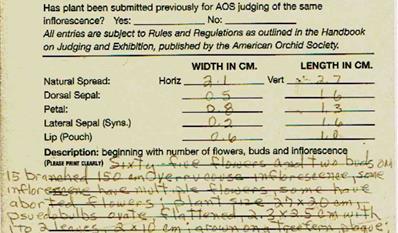 Has plant been submitted previously for AOS judging of the same
inflorescence? Yes: No:
All entries are subject to Rules and Regulations as outlined in the Handbook
on Judging and Exhibition, published by the American Orchid Society.
WIDTH IN CM. LENGTH IN CM.
Natural Spread: Horiz 2.1 Vert 2.7
Dorsal Sepal: 0.5 1.6
Petal: 0.8 1.3
Lateral Sepal (Syns.) 0.2 1.6
Lip (Pouch) 0.6 1.0
Description: beginning with number of flowers, buds and inflorescence
(PLEASE PRINT CLEARLY) Sixty-five flowers and two buds on
15 branched 150 cm verrucose inflorescence, some
inflorescene have multiple flowers, some have
aborted flowers; plant size 27x20 cm,
psuedobulbs ovate, flattened 2.3x2.5 cm with
1 to 2 leaves, 2x10 cm; grown on a treefern plaque;